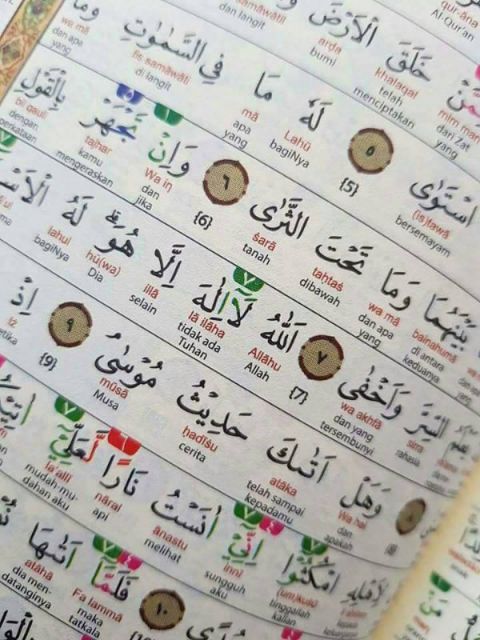 qur-āna
Al-Qur'an
خَلَقَ الْاَرْضَ
khalaqal arḍa samāwātil
telah menciptakan bumi dan langit
اسْتَوٰى ٥ لَهٗ مَا فِى السَّمٰوٰتِ وَمَا
(is)tawā Lahū mā fis samāwāti wa mā
bersemayam {5} bagiNya apa yang di langit dan apa yang
بَيْنَهُمَا وَمَا تَحْتَ الثَّرٰى ٦ وَاِنْ تَجْهَرْ بِالْقَوْلِ
bainahumā wa mā taḥtaś śarā Wa in tajhar bil qauli
di antara keduanya dan apa yang dibawah tanah {6} dan jika kamu mengeraskan dengan perkataan
السِّرَّ وَاَخْفٰى ٧ اَللّٰهُ لَآ اِلٰهَ اِلَّا هُوَۗ لَهُ
sirra wa akhfā Allāhu lā ilāha illā hū(wa) lahul
rahasia dan yang tersembunyi {7} Allah tidak ada Tuhan selain Dia bagiNya
٨ وَهَلْ اَتٰىكَ حَدِيْثُ مُوْسٰى ٩ اِذْ
Wa hal atāka ḥadīśu mūsā Iz
{8} dan apakah telah sampai kepadamu cerita Musa {9} ketika
لِاَهْلِهِ امْكُثُوْٓا اِنِّيْٓ اٰنَسْتُ نَارًا لَّعَلِّيْٓ
(um)kuśū innī ānastu nāral la'allī
tinggallah kalian sungguh aku melihat api mudah mu-dahan aku
١٠ فَلَمَّآ اَتٰىهَا
Fa lammā atāhā
maka tatkala dia men-datanginya